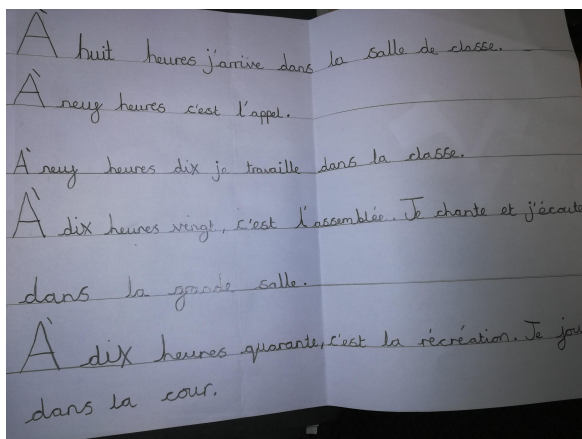 À huit heures j'arrive dans la salle de classe.
À neuf heures c'est l'appel.
À neuf heures dix je travaille dans la classe.
À dix heures vingt, c'est l'assemblée. Je chante et j'écoute
dans la grande salle.
À dix heures quarante, c'est la récréation. Je jou
dans la cour.